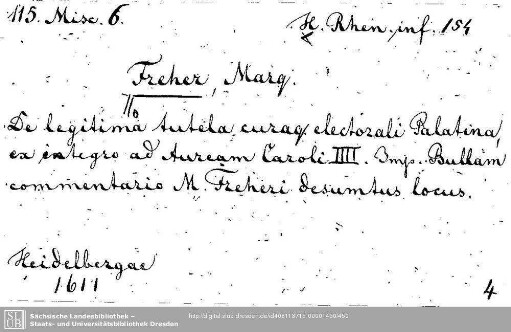 115. Misc. 6.
H. Rhen. inf. 154
Freher, Marq.
De legitima tutela curaq electorali Palatina,
ex integro ad Auream Caroli IIII. Imp. Bullam
commentario M. Freheri desumtus locus.
Heidelbergae
1611
4
Sächsische Landesbibliothek –
Staats- und Universitätsbibliothek Dresden